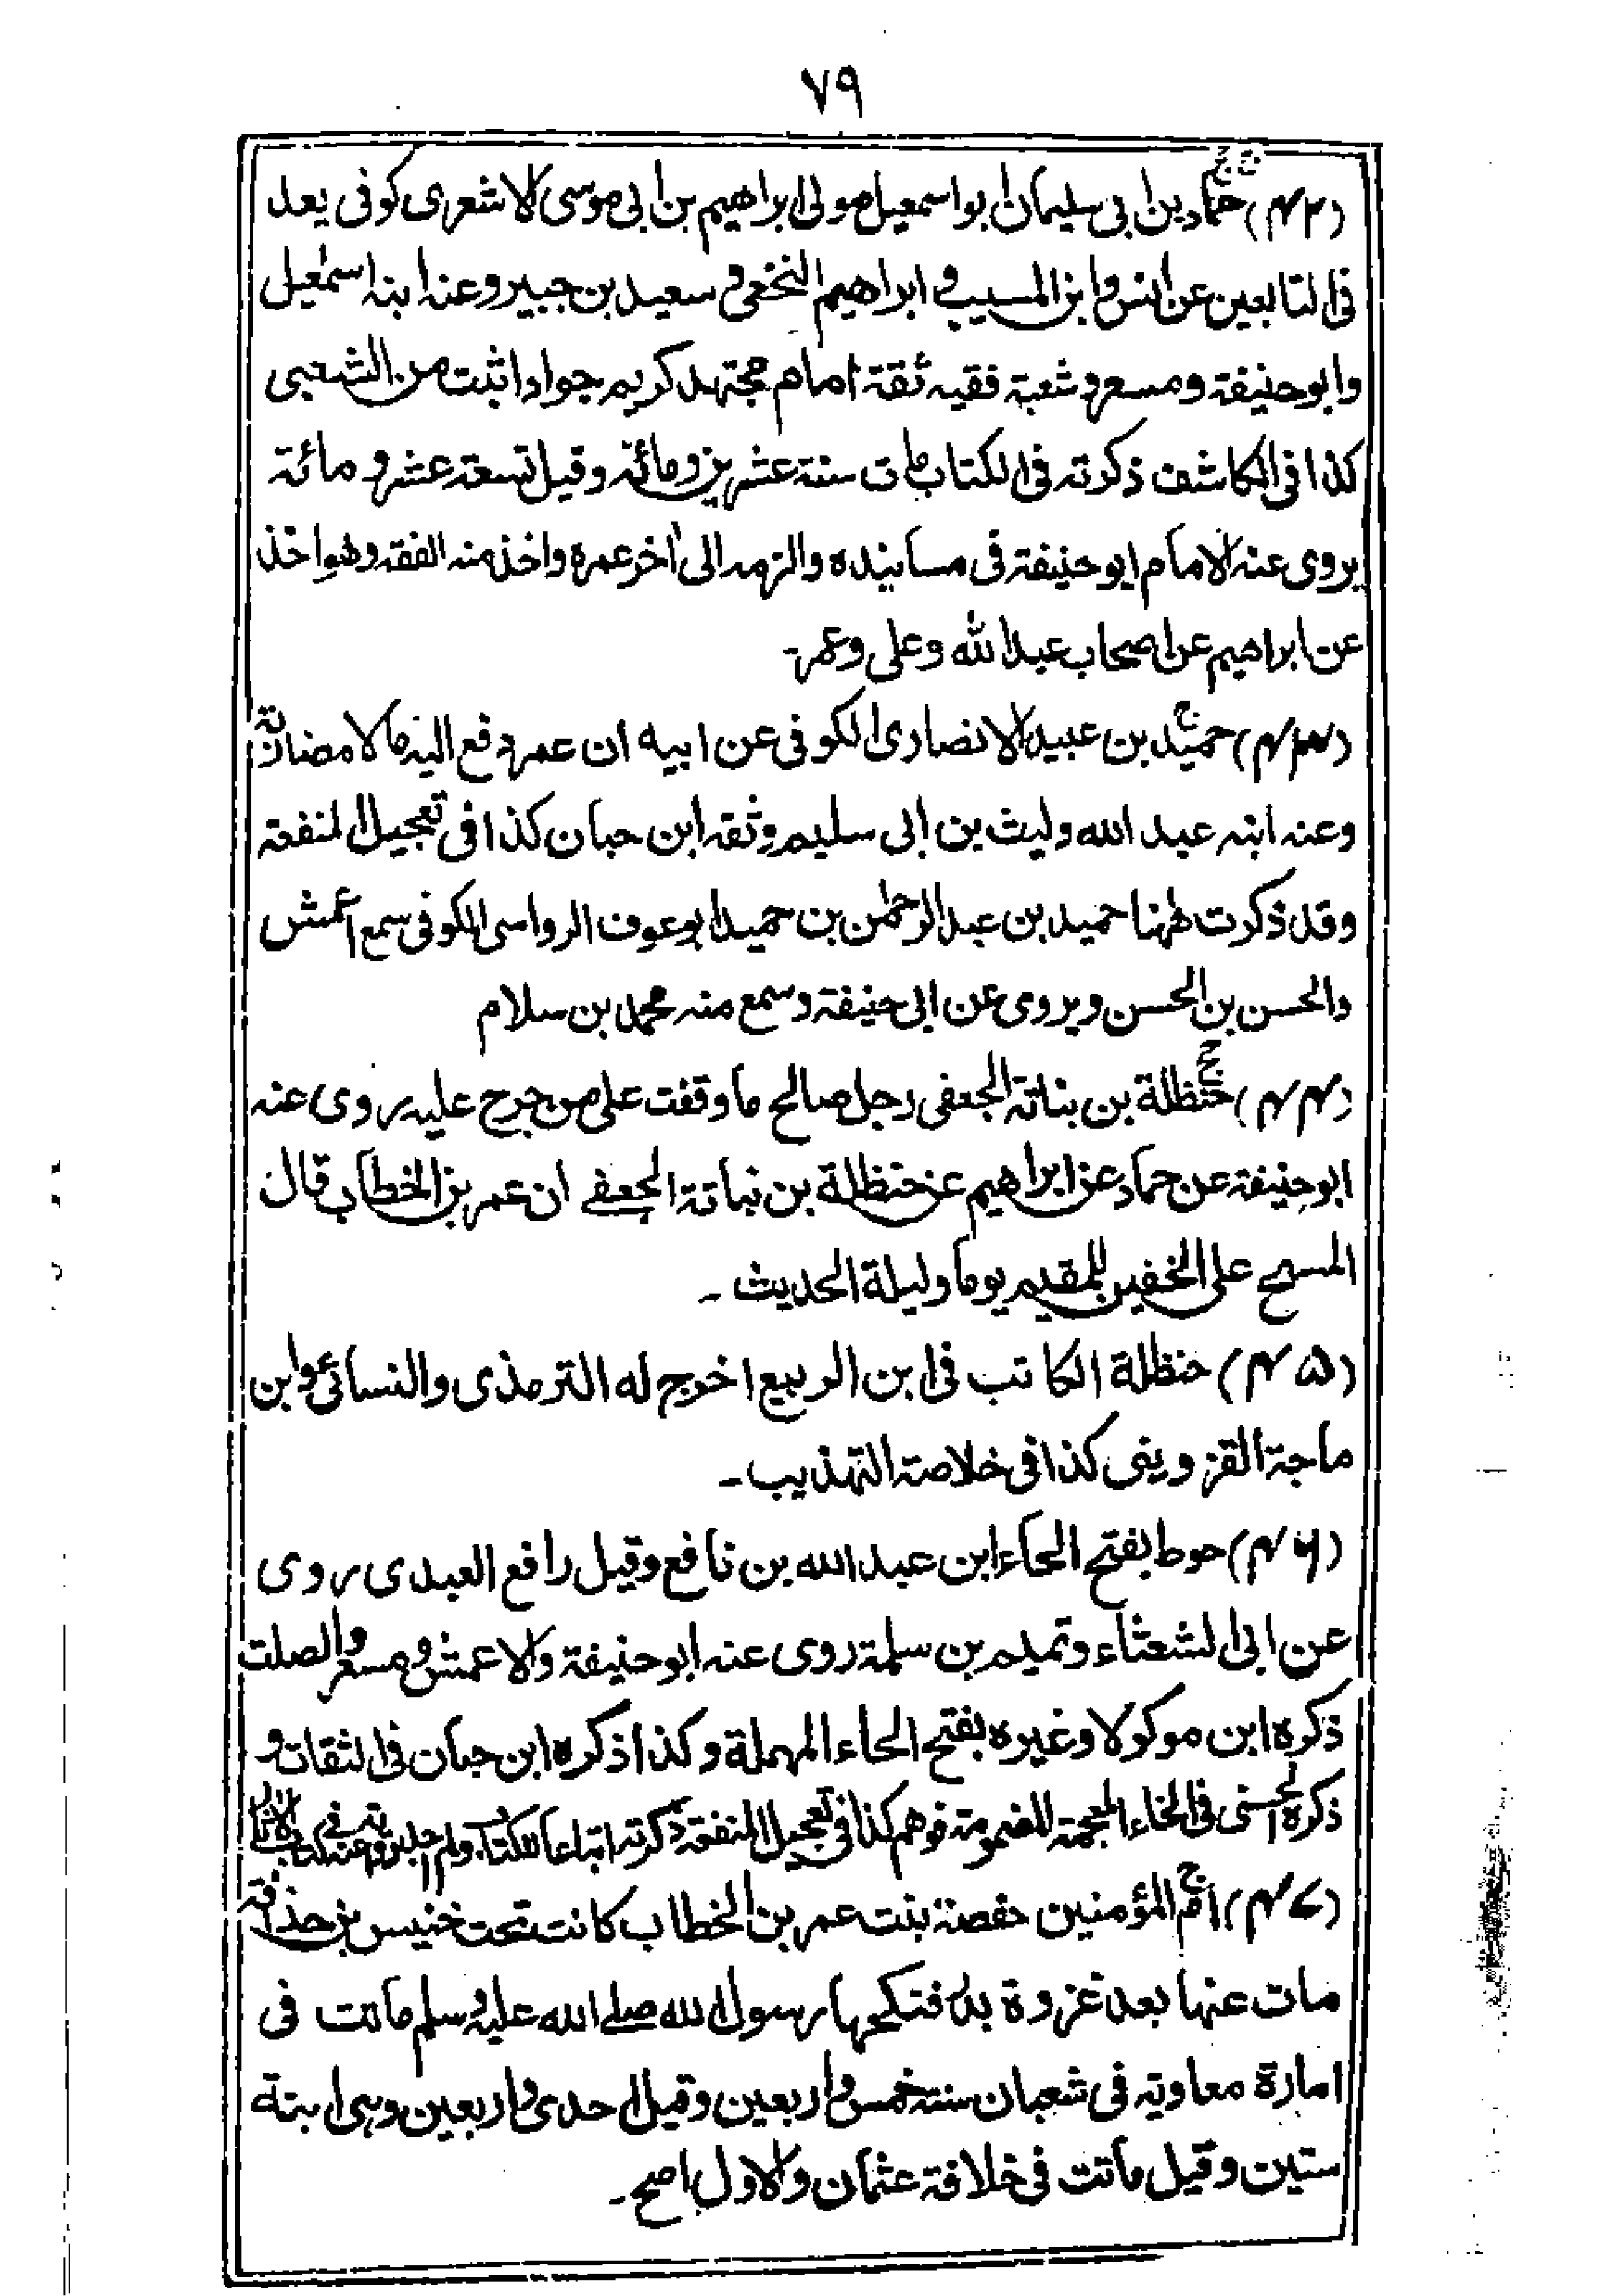 ٧٩
(٤٢) حماد بن ابی سلیمان ابو اسمعیل مولی ابراهیم بن ابی موسی الاشعری کوفی یعد
فی التابعین عن انس وابن المسیب و ابراهیم النخعی و سعید بن جبیر وعنه ابنه اسمٰعیل
وابو حنیفة ومسعر و شعبة فقیه ثقة امام مجتهد کریم جواد اثبت من الشعبی
کذا فی الکاشف ذکرته فی الکتاب مات سنة عشرین ومائة وقیل تسعة عشر و مائة
یروی عنه الامام ابو حنیفة فی مسانیده والزمه الی اٰخر عمره واخذ منه الفقه وهو اخذ
عن ابراهیم عن اصحاب عبد الله وعلی وعمر۔
(٤٣) حمید بن عبید الانصاری الکوفی عن ابیه ان عمر دفع الیه مالا مضاربة
وعنه ابنه عبد الله ولیث بن ابی سلیم وثقه ابن حبان کذا فی تعجیل المنفعة
وقد ذکرت هٰهنا حمید بن عبد الرحمٰن بن حمید ابو عوف الرواسی الکوفی سمع اعمش
والحسن بن الحسن ویروی عن ابی حنیفة وسمع منه محمد بن سلام
(٤٤) حنظلة بن بناتة الجعفی رجل صالح ما وقفت علی من جرح علیه روی عنه
ابو حنیفة عن حماد عن ابراهیم عن حنظلة بن نباتة الجعفے ان عمر بن الخطاب قال
المسح علی الخفین للمقیم یوما ولیلة الحدیث ۔
(٤٥) حنظلة الکاتب فی ابن الربیع اخرج له الترمذی والنسائی وابن
ماجة القزوینی کذا فی خلاصة التهذیب ۔
(٤٦) حوط بفتح الحاء ابن عبد الله بن نافع وقیل رافع العبدی روی
عن ابی الشعثاء وتمیم بن سلمة روی عنه ابو حنیفة والاعمش و مسعر والصلت
ذکره ابن موکولا وغیره بفتح الحاء المهملة وکذا ذکره ابن حبان فی الثقات و
ذکره الحسنی فی الخاء المعجمة المضمومة فوهم کذا فی تعجیل المنفعة ذکرته اتباعا للکتاب ولم اجد روایته فی کتاب الاٰثار
(٤٧) ام المؤمنین حفصة بنت عمر بن الخطاب کانت تحت خنیس بن حذافة
مات عنها بعد غزوة بدر فنکحها رسول الله صلے الله علیه وسلم ماتت فی
امارة معاویة فی شعبان سنة خمس و اربعین وقیل احدی و اربعین وهی ابنة
ستین وقیل ماتت فی خلافة عثمان والاول اصح ۔